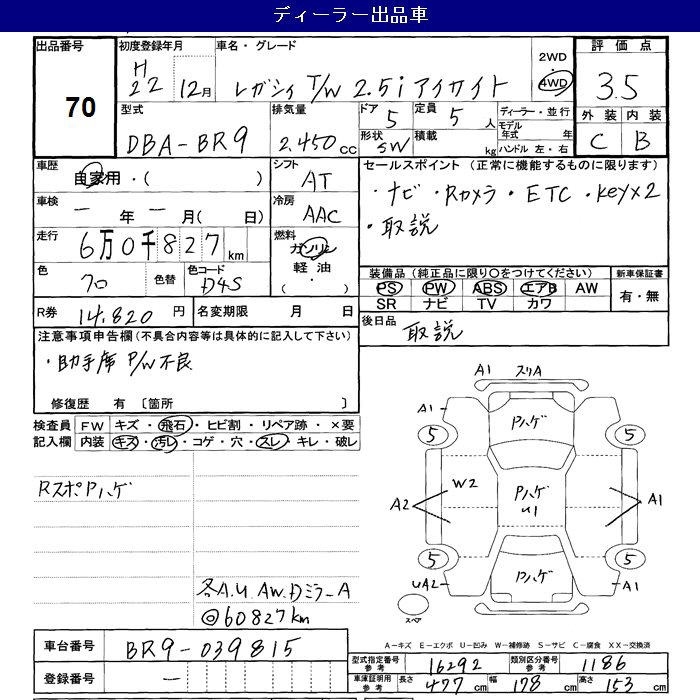 ディーラー出品車
出品番号 初度登録年月 車名・グレード 評価点
70
H22 12月 レガシィ T/W 2.5i アイサイト 2WD 4WD 3.5
型式 排気量 ドア 5 定員 5人 ディーラー・並行 外装 内装
DBA-BR9 2.450cc 形状 SW 積載 kg モデル年式 年 ハンドル 左・右 C B
車歴 自家用・( ) シフト AT セールスポイント (正常に機能するものに限ります)
車検 ー年ー月( 日) 冷房 AAC ・ナビ・Rカメラ・ETC・keyx2
・取説
走行 6万0千827km 燃料 ガソリン 軽油・( )
色 色替 色コード D4S
装備品 (純正品に限り〇をつけてください) 新車保証書
PS PW ABS エアB AW 有・無
SR ナビ TV カワ
R券 14,820円 名変期限 月 日 後日品 取説
注意事項申告欄 (不具合内容等は具体的に記入して下さい)
・助手席 P/W不良
修復歴 有 〔箇所 〕
検査員記入欄 FW キズ・飛石・ヒビ割・リペア跡・×要
内装 キズ・汚レ・コゲ・穴・スレ・キレ・破レ
RスポPハゲ
各A.U AW.Dミラ-A
◎60827km
A1 スリA
A1 Pハゲ
5 5
A2 W2 Pハゲ U1 A1
5 5
UA2 Pハゲ A1
スペア
A-キズ E-エクボ U-凹み W-補修跡 S-サビ C-腐食 XX-交換済
車台番号 BR9-039815
登録番号 ー
型式指定番号 参考 16292 類別区分番号 参考 1186
車庫証明用 参考 長さ 477cm 幅 178cm 高さ 153cm